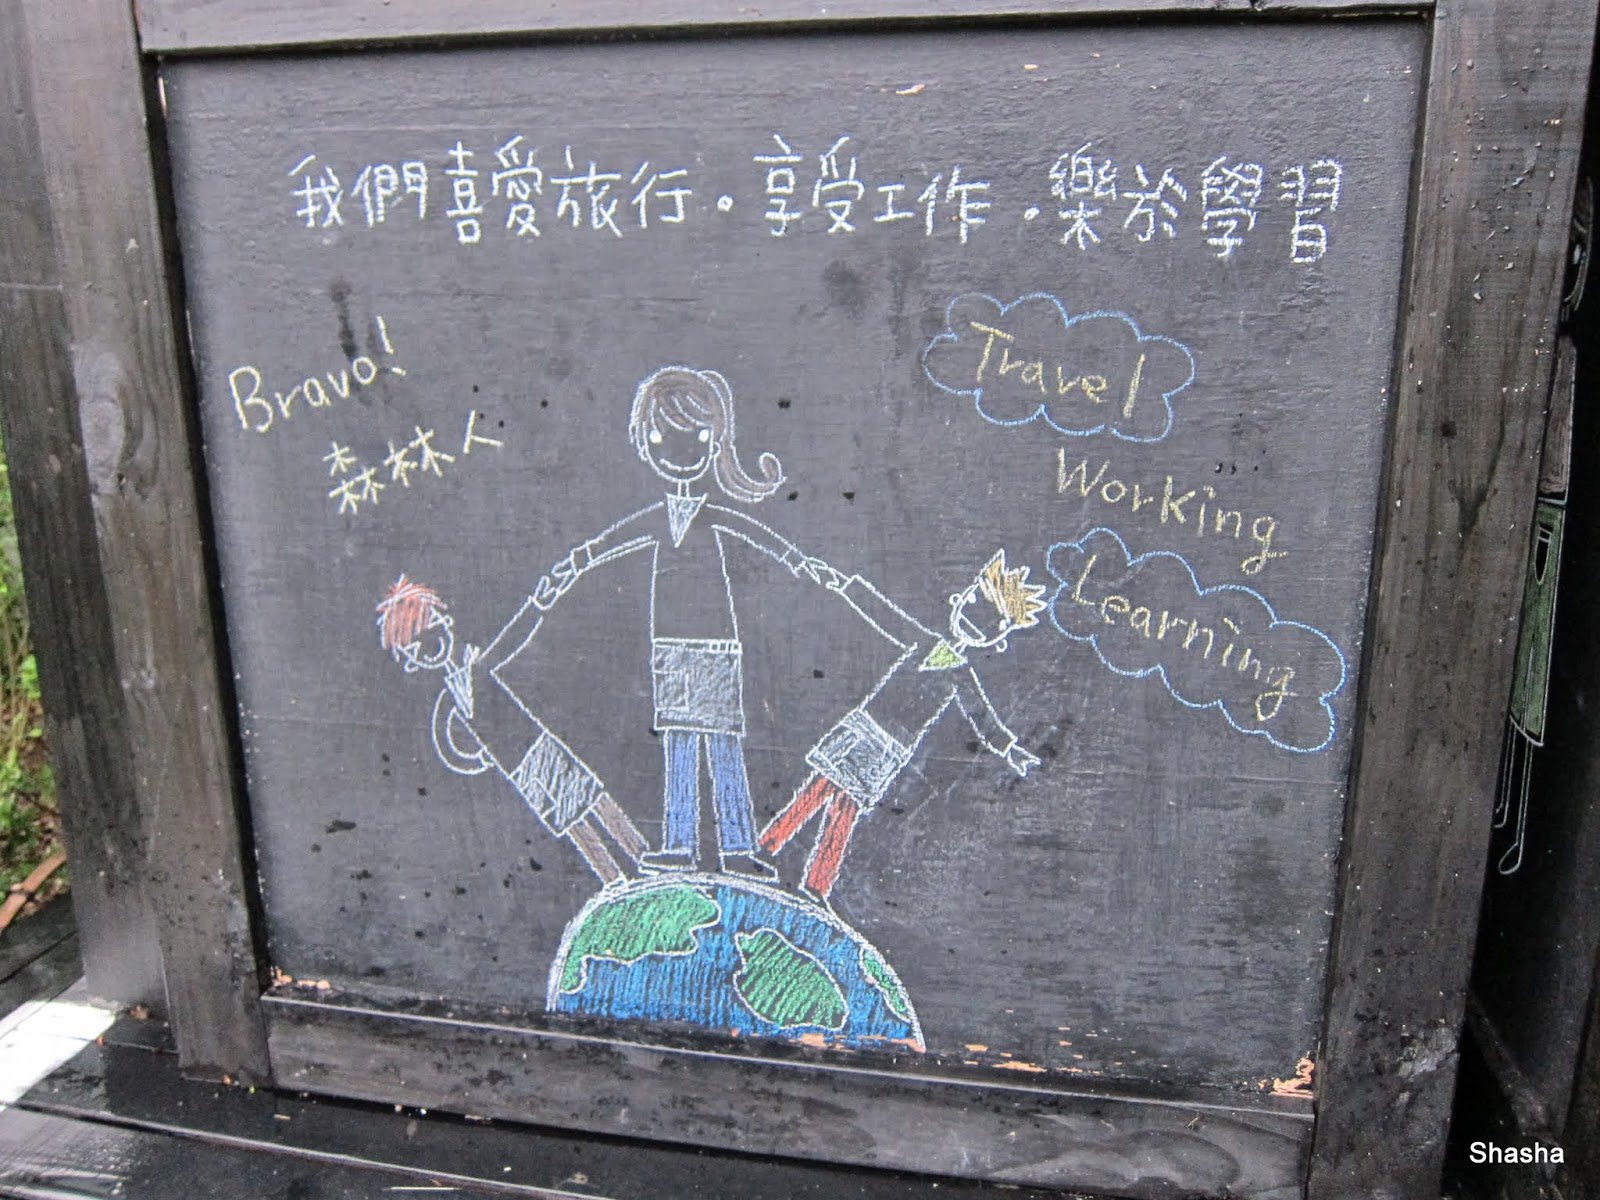 我們喜愛旅行。享受工作。樂於學習
Bravo!
森林人
Travel
Working
Learning
Shasha